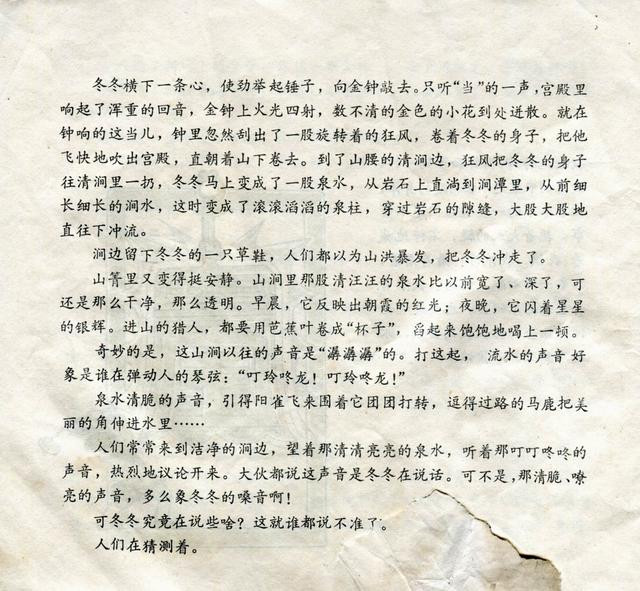 冬冬横下一条心，使劲举起锤子，向金钟敲去。只听“当”的一声，宫殿里
响起了浑重的回音，金钟上火光四射，数不清的金色的小花到处迸散。就在
钟响的这当儿，钟里忽然刮出了一股旋转着的狂风，卷着冬冬的身子，把他
飞快地吹出宫殿，直朝着山下卷去。到了山腰的清涧边，狂风把冬冬的身子
往清涧里一扔，冬冬马上变成了一股泉水，从岩石上直淌到涧潭里，从前细
长细长的涧水，这时变成了滚滚滔滔的泉柱，穿过岩石的隙缝，大股大股地
直往下冲流。
涧边留下冬冬的一只草鞋，人们都以为山洪暴发，把冬冬冲走了。
山箐里又变得挺安静。山涧里那股清汪汪的泉水比以前宽了、深了，可
还是那么干净，那么透明。早晨，它反映出朝霞的红光；夜晚，它闪着星星
的银辉。进山的猎人，都要用芭蕉叶卷成“杯子”，舀起来饱饱地喝上一顿。
奇妙的是，这山涧以往的声音是“潺潺潺”的。打这起，流水的声音好
象是谁在弹动人的琴弦：“叮玲咚龙！叮玲咚龙！”
泉水清脆的声音，引得阳雀飞来围着它团团打转，逗得过路的马鹿把美
丽的角伸进水里……
人们常常来到洁净的涧边，望着那清清亮亮的泉水，听着那叮叮咚咚的
声音，热烈地议论开来。大伙都说这声音是冬冬在说话。可不是，那清脆、嘹
亮的声音，多么象冬冬的嗓音啊！
可冬冬究竟在说些啥？这就谁都说不准了。
人们在猜测着。